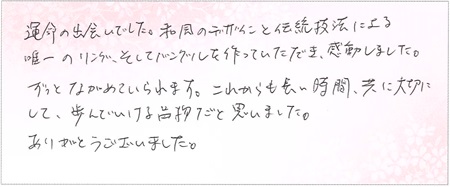 運命の出会いでした。和風のデザインと伝統技法による
唯一のリング、そしてバングルを作っていただき、感動しました。
ずっとながめていられます。これからも長い時間、共に大切に
して、歩んでいける品物だと思いました。
ありがとうございました。